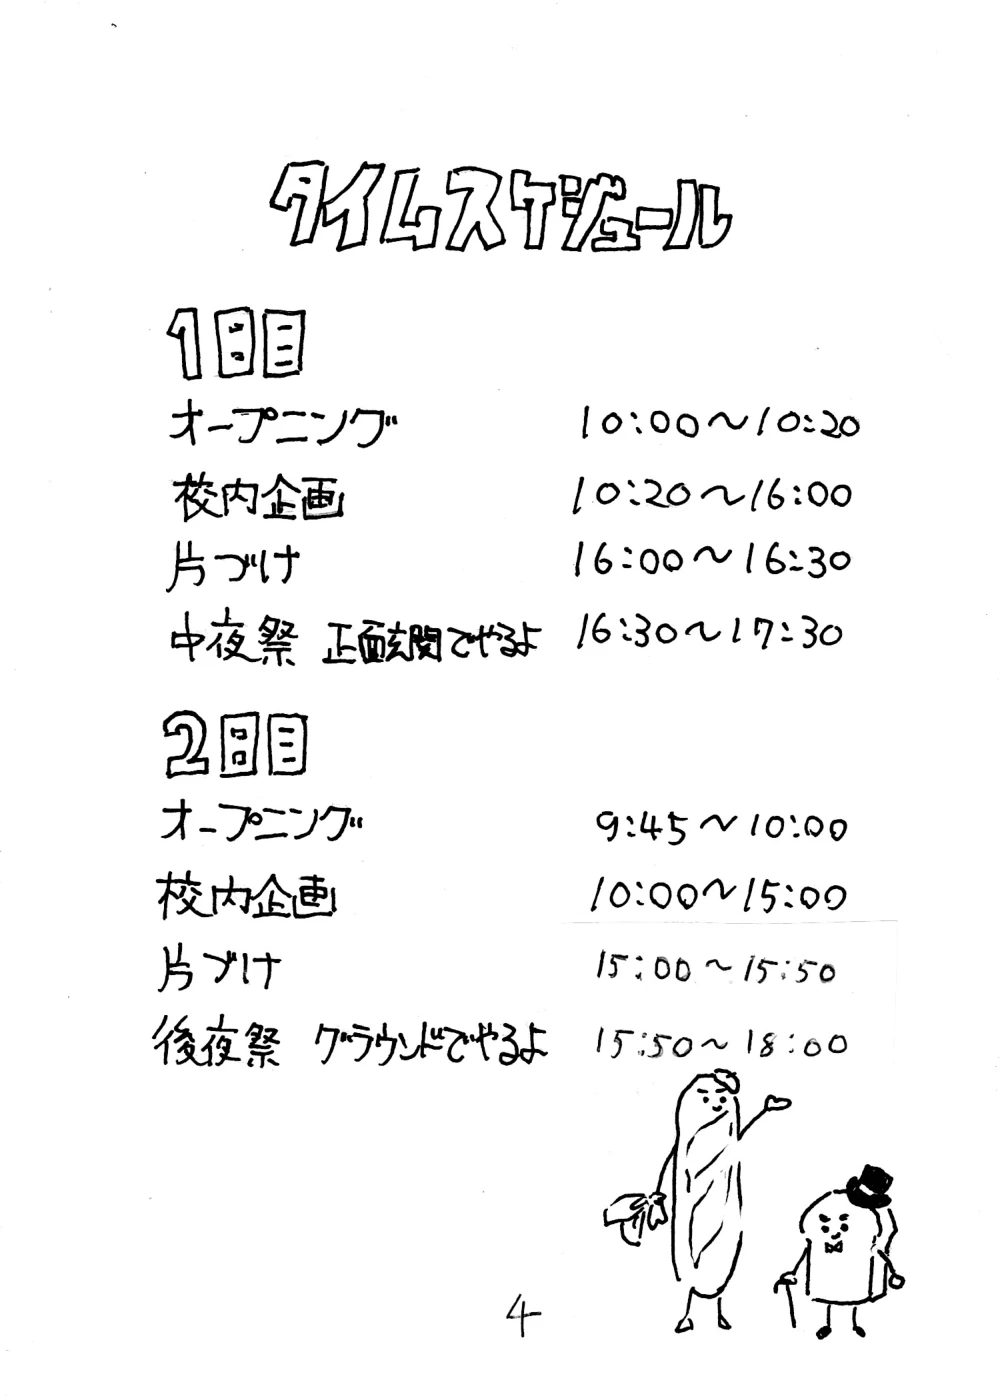 タイムスケジュール
1日目
オープニング 10:00～10:20
校内企画 10:20～16:00
片づけ 16:00～16:30
中夜祭 正面玄関でやるよ 16:30～17:30
2日目
オープニング 9:45～10:00
校内企画 10:00～15:00
片づけ 15:00～15:50
後夜祭 グラウンドでやるよ 15:50～18:00
4